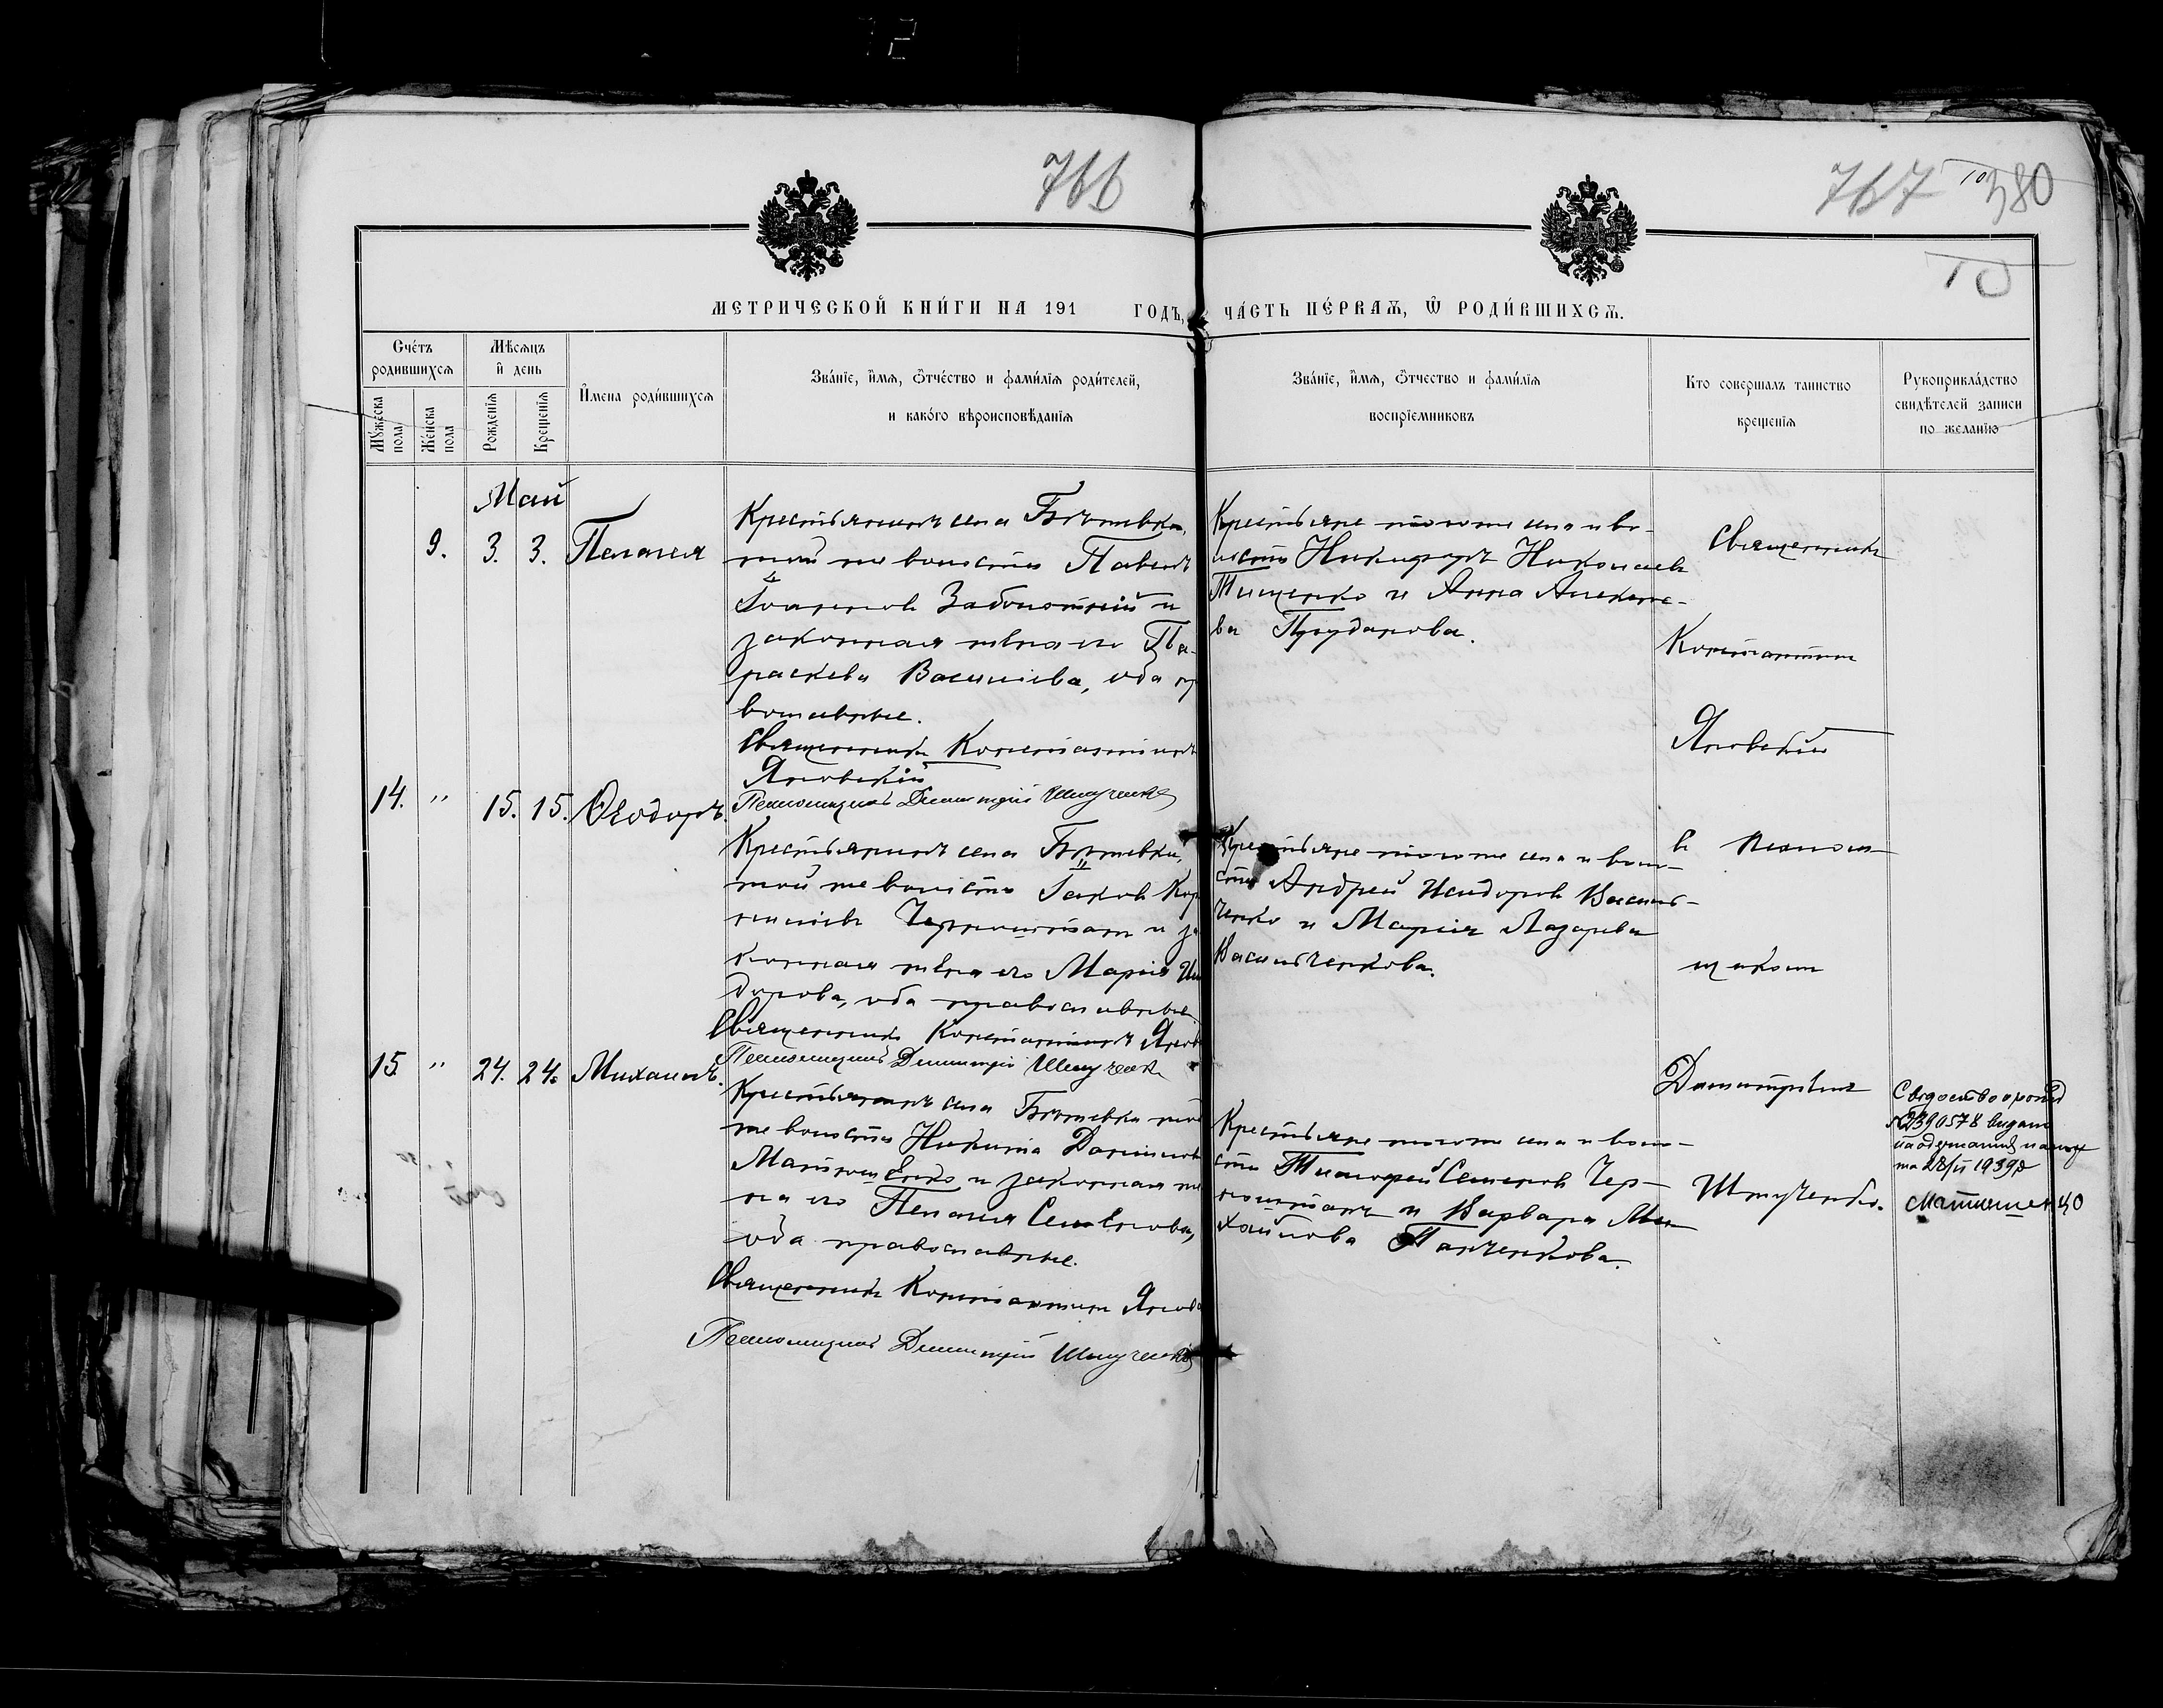 766
767
380
10
МЕТРИЧЕСКОЙ КНИ́ГИ НА 191 ГОДЪ, ЧА́СТЬ ПЕ́РВАѦ, Ѿ РОДИ́ВШИХСѦ.
Счетъ родившихсѧ
Мѣсѧцъ и день
Мꙋжеска пола
Женска пола
Рожденїѧ
Крещенїѧ
Имена роди́вшихсѧ
Зва́нїе, и҆́мѧ, ѻ҆́тчество и фами́лїѧ роди́телей,
и како́го вѣроисповѣ́данїѧ
Зва́нїе, и҆́мѧ, ѻ҆́тчество и фами́лїѧ
воспрїемниковъ
Кто совершалъ таинство
крещенїѧ
Рукоприкла́дство
свидѣтелей записи
по желанїю
Май
9. 3. 3. Пелагея
Крестьянинъ села
той же волости Павелъ
Іоанновъ Заболотній и
законная жена его Па-
раскева Василіева, оба пр
вославные.
Священникъ Константинъ
Яновскій
Псаломщикъ Димитрій Штученко
Крестьяне того же села и во-
лости Никифоръ Николаевъ
Тищенко и Анна Алексее-
ва Прударова.
Священникъ
Константинъ
Яновскій
съ псалом-
щикомъ
Димитріемъ
Штученко.
14. " 15. 15. Ѳеодоръ.
Крестьянинъ села
той же волости Іаковъ Кор
ниліевъ Черноштанъ и за
конная жена его Марія Иси
дорова, оба православные.
Священникъ Константинъ Яновс
Псаломщикъ Димитрій Штученко
Крестьяне того же села и воло-
сти Андрей Исидоровъ Василь-
ченко и Марія Лазарева
Васильченкова.
15. " 24. 24. Михаилъ.
Крестьянинъ села той
же волости Никита Даниловъ
Матюшенко и законная же
на его Пелагея Семенова,
оба православные.
Священникъ Константинъ Яновс
Псаломщикъ Димитрій Штученко
Крестьяне того же села и воло-
сти Тимофей Семеновъ Чер-
ноштанъ и Варвара Ми-
хайлова Панченкова.
Свідоцтво о рожд
№2390578 видано
на одержання паспор
та 28/II 1939р
Матюшенко